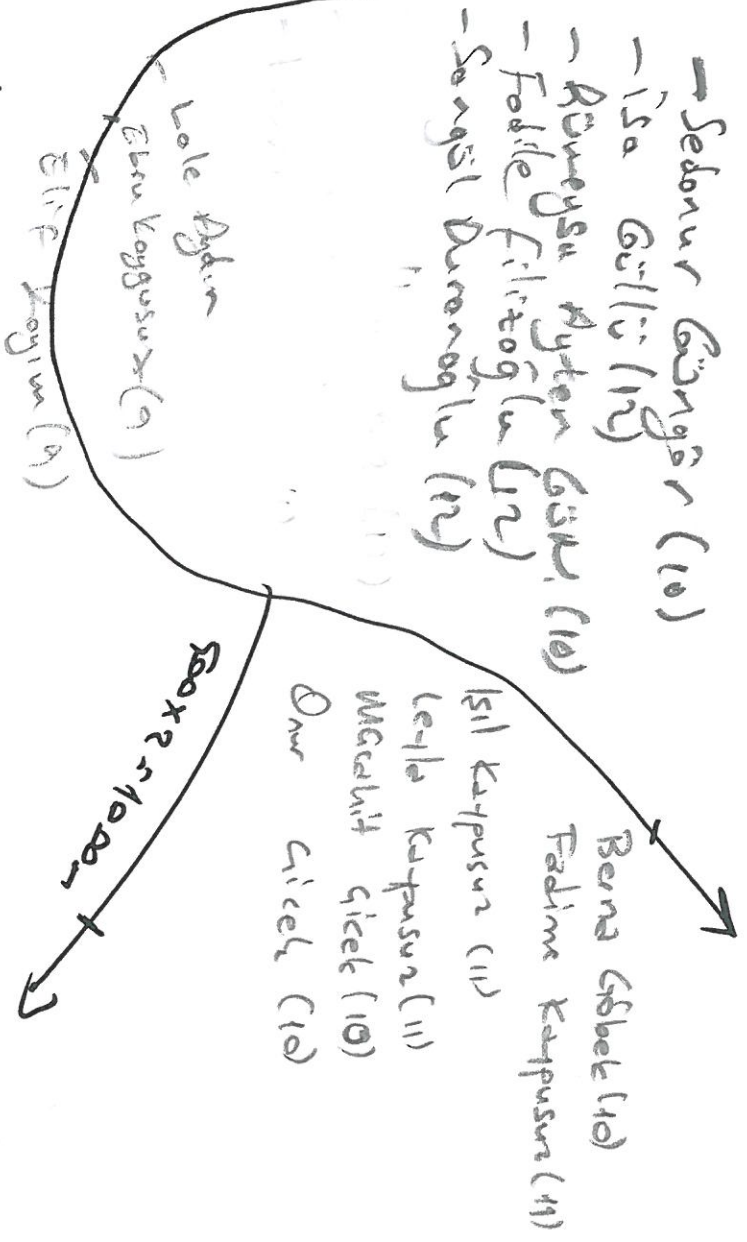 - Sedanur Güngör (10)
- İsa Güllü (12)
- Rümeysa Ayten (10)
- Fadile Filizoğlu (12)
- Songül Duranoğlu (12)
Lale Aydın
Ebru Kaygusuz (9)
Elif (9)
Berna Göbek (10)
Fadime Kaypusuz (11)
Işıl Kaypusuz (11)
Leyla Kaypusuz (11)
Mücahit Çiçek (10)
Onur Çiçek (10)
500x2=1000m